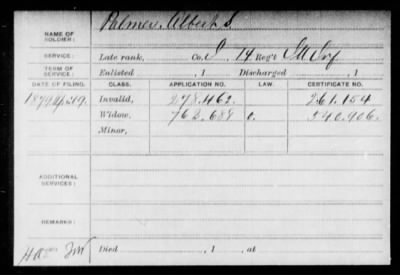 NAME OF SOLDIER: Palmer, Albert S.
SERVICE: Late rank, Co. I 14 Reg't Inf
TERM OF SERVICE: Enlisted , 1 Discharged , 1
DATE OF FILING. CLASS. APPLICATION NO. LAW. CERTIFICATE NO.
1879 Invalid, 278.462. 261.154
Widow, 762.688 540.906.
Minor,
ADDITIONAL SERVICES:
REMARKS:
Died , 1 , at